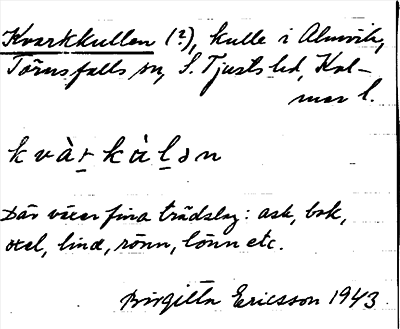 Kvarkkullen (?), kulle i Almvik,
Törnsfalls sn, S. Tjusts hd, Kal-
mar l.
kvàrkàlən
Där växer fina trädslag: ask, bok,
oxel, lind, rönn, lönn etc.
Birgitta Ericsson 1943.